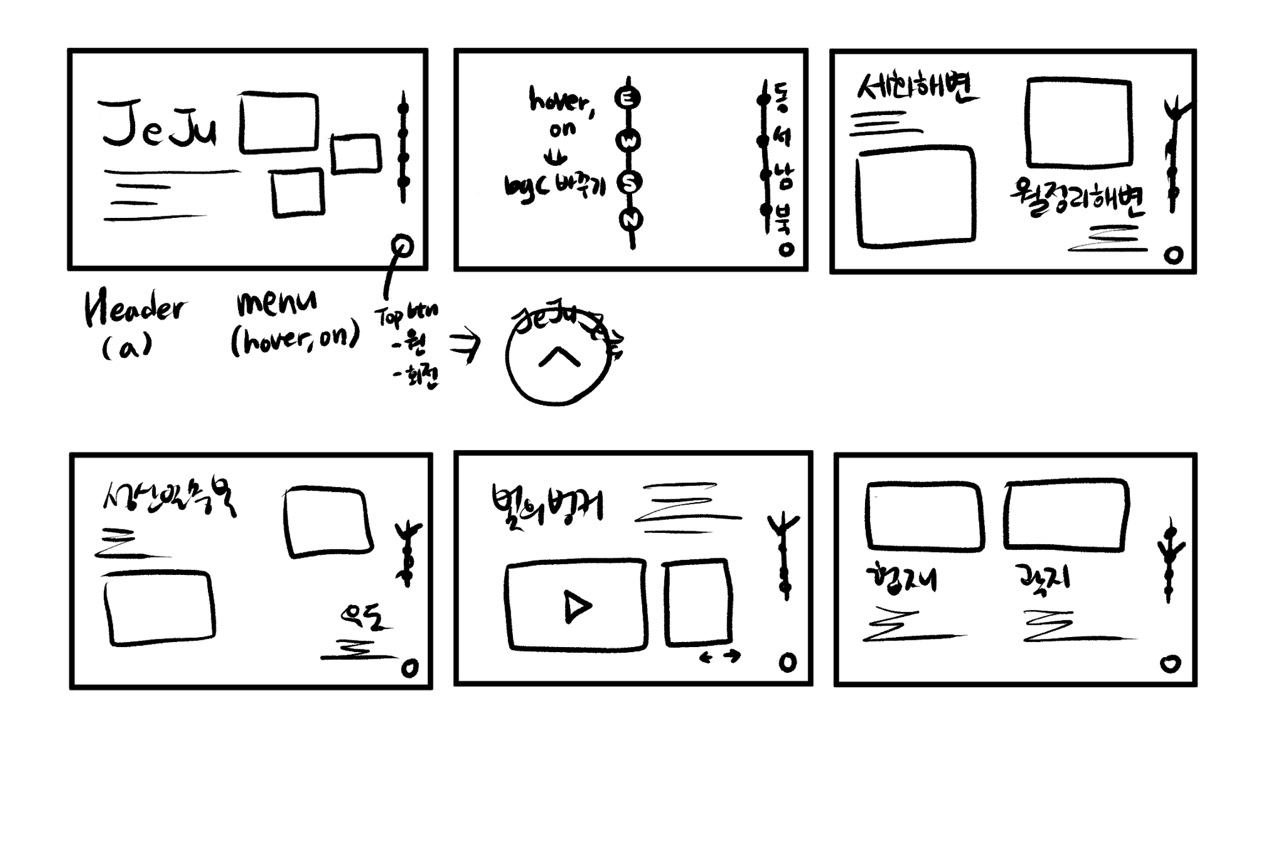 JeJu
hover,
on
bgC 바꾸기
E
W
S
N
동
서
남
북
세화해변
월정리해변
Header
(a)
menu
(hover, on)
Top btn
-원
-회전
JeJu Je
성산일출봉
우도
벌의벙커
협재
곽지